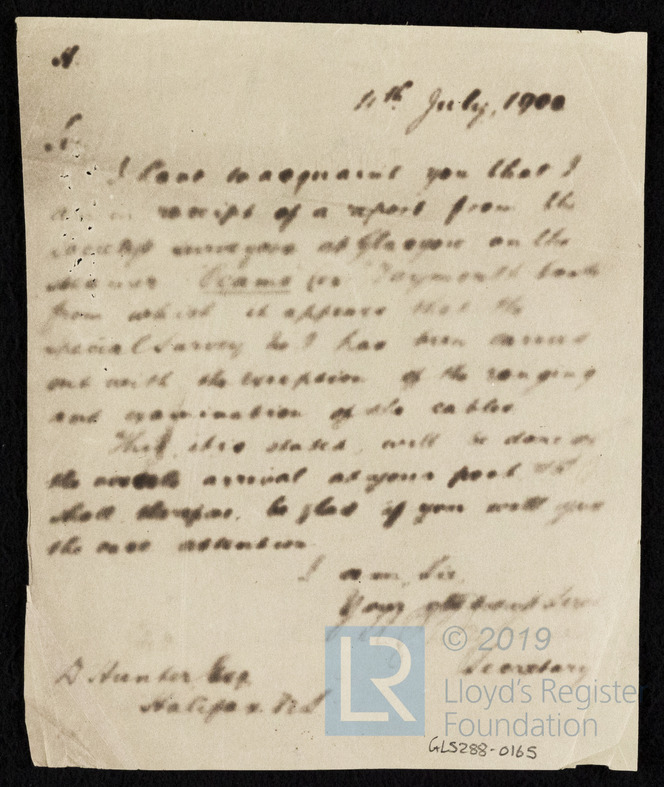 H.
11th July, 1900
Sir
I have to acquaint you that I
am in receipt of a report from the
Society's Surveyors at Glasgow on the
steamer Ocamo (ex Taymouth Castle
from which it appears that the
Special Survey No 1 has been carried
out with the exception of the ranging
and examination of the cables
This, it is stated, will be done on
the vessel's arrival at your port
shall therefore, be glad if you will give
the case attention
I am, Sir,
Your obedient Serv
Secretary
D Hunter Esq
Halifax. N S
© 2019
LR
Lloyd's Register
Foundation
GLS288-0165